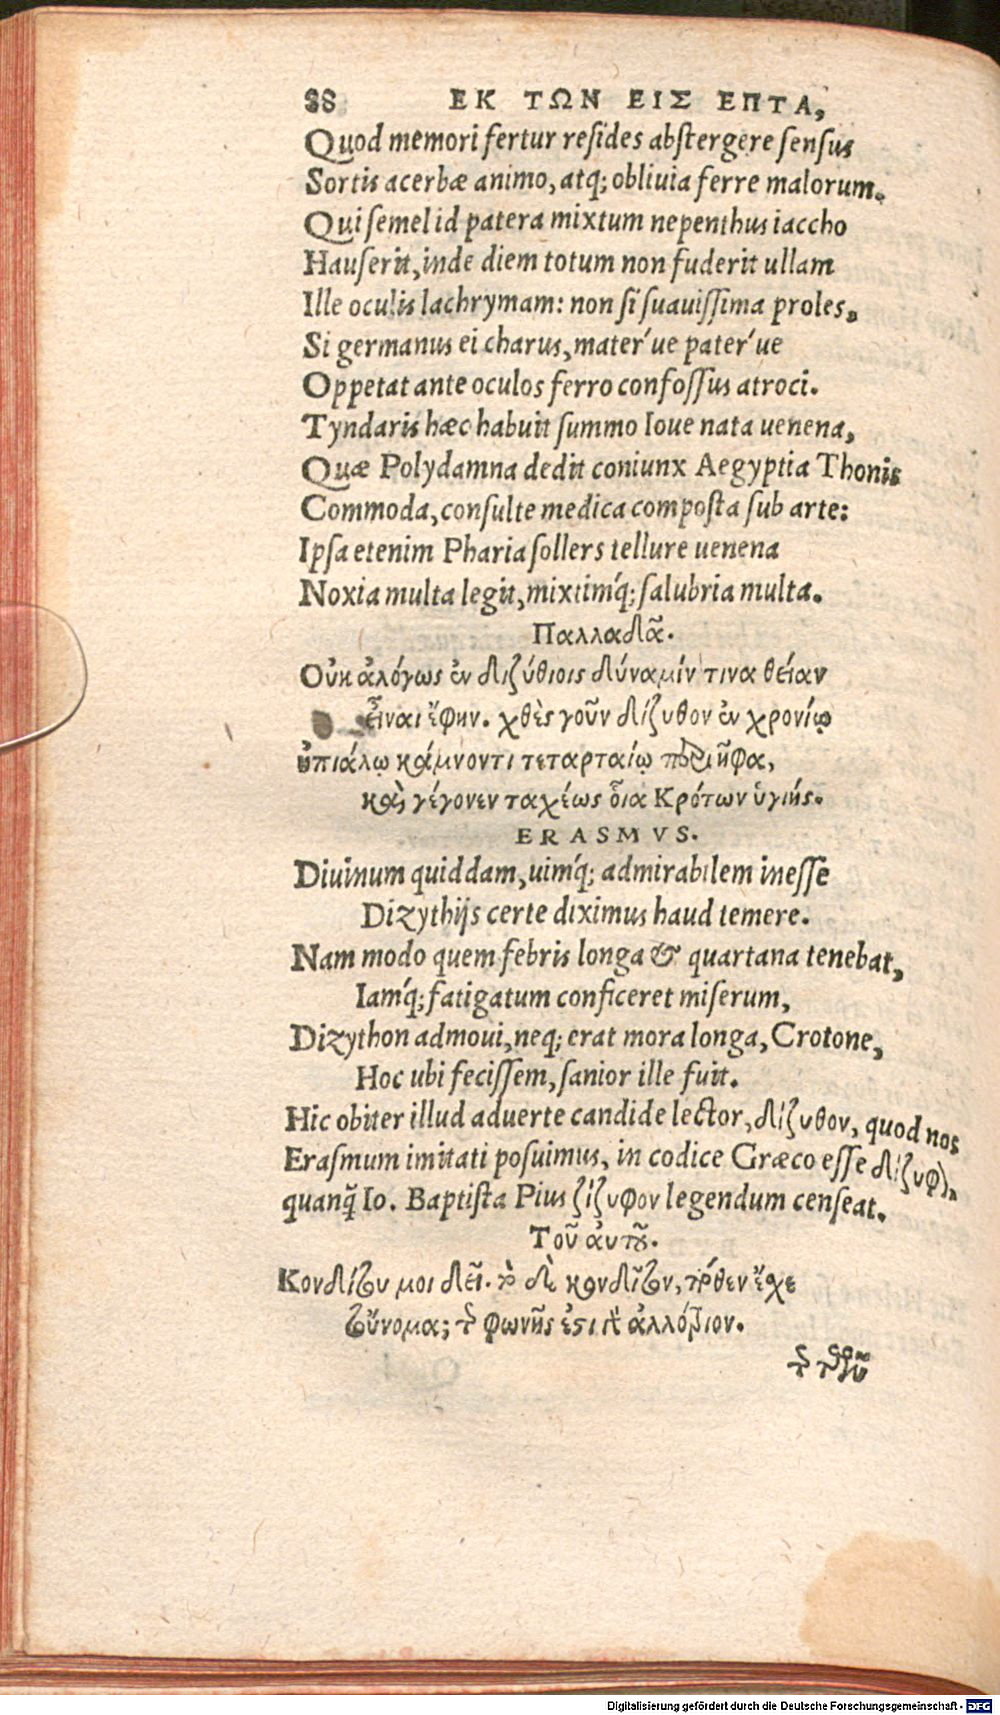 88 ΕΚ ΤΩΝ ΕΙΣ ΕΠΤΑ,
Quod memori fertur resides abstergere sensus
Sortis acerbæ animo, atq; obliuia ferre malorum.
Qui semel id patera mixtum nepenthus iaccho
Hauserit, inde diem totum non fuderit ullam
Ille oculis lachrymam: non si suauissima proles,
Si germanus ei charus, mater´ue pater´ue
Oppetat ante oculos ferro confossus atroci.
Tyndaris hæc habuit summo Ioue nata uenena,
Quæ Polydamna dedit coniunx Aegyptia Thonis
Commoda, consulte medica composta sub arte:
Ipsa etenim Pharia sollers tellure uenena
Noxia multa legit, mixtimq́; salubria multa.
Παλλαδᾶ.
Οὐκ ἀλόγως ἐν διζύθιοις δύναμίν τινα θείαν
εἶναι ἔφην. χθὲς γοῦν δίζυθον ἐν χρονίῳ
ὑπιάλῳ κάμνοντι τεταρταίῳ περιῆψα,
καὶ γέγονεν ταχέως οἷα Κρότων ὑγιής.
ERASMVS.
Diuinum quiddam, uimq́; admirabilem inesse
Dizythijs certe diximus haud temere.
Nam modo quem febris longa & quartana tenebat,
Iamq́; fatigatum conficeret miserum,
Dizython admoui, neq; erat mora longa, Crotone,
Hoc ubi fecissem, sanior ille fuit.
Hic obiter illud aduerte candide lector, δίζυθον, quod nos
Erasmum imitati posuimus, in codice Græco esse δίζυφον,
quanq̃ Io. Baptista Pius ζίζυφον legendum censeat.
Τοῦ αὐτοῦ.
Κονδίτου μοι δεῖ. τὸ δὲ κονδῖτον, πόθεν ἔχε
τοὔνομα; τῆς φωνῆς ἐστι γὰρ ἀλλότριον.
Digitalisierung gefördert durch die Deutsche Forschungsgemeinschaft - DFG